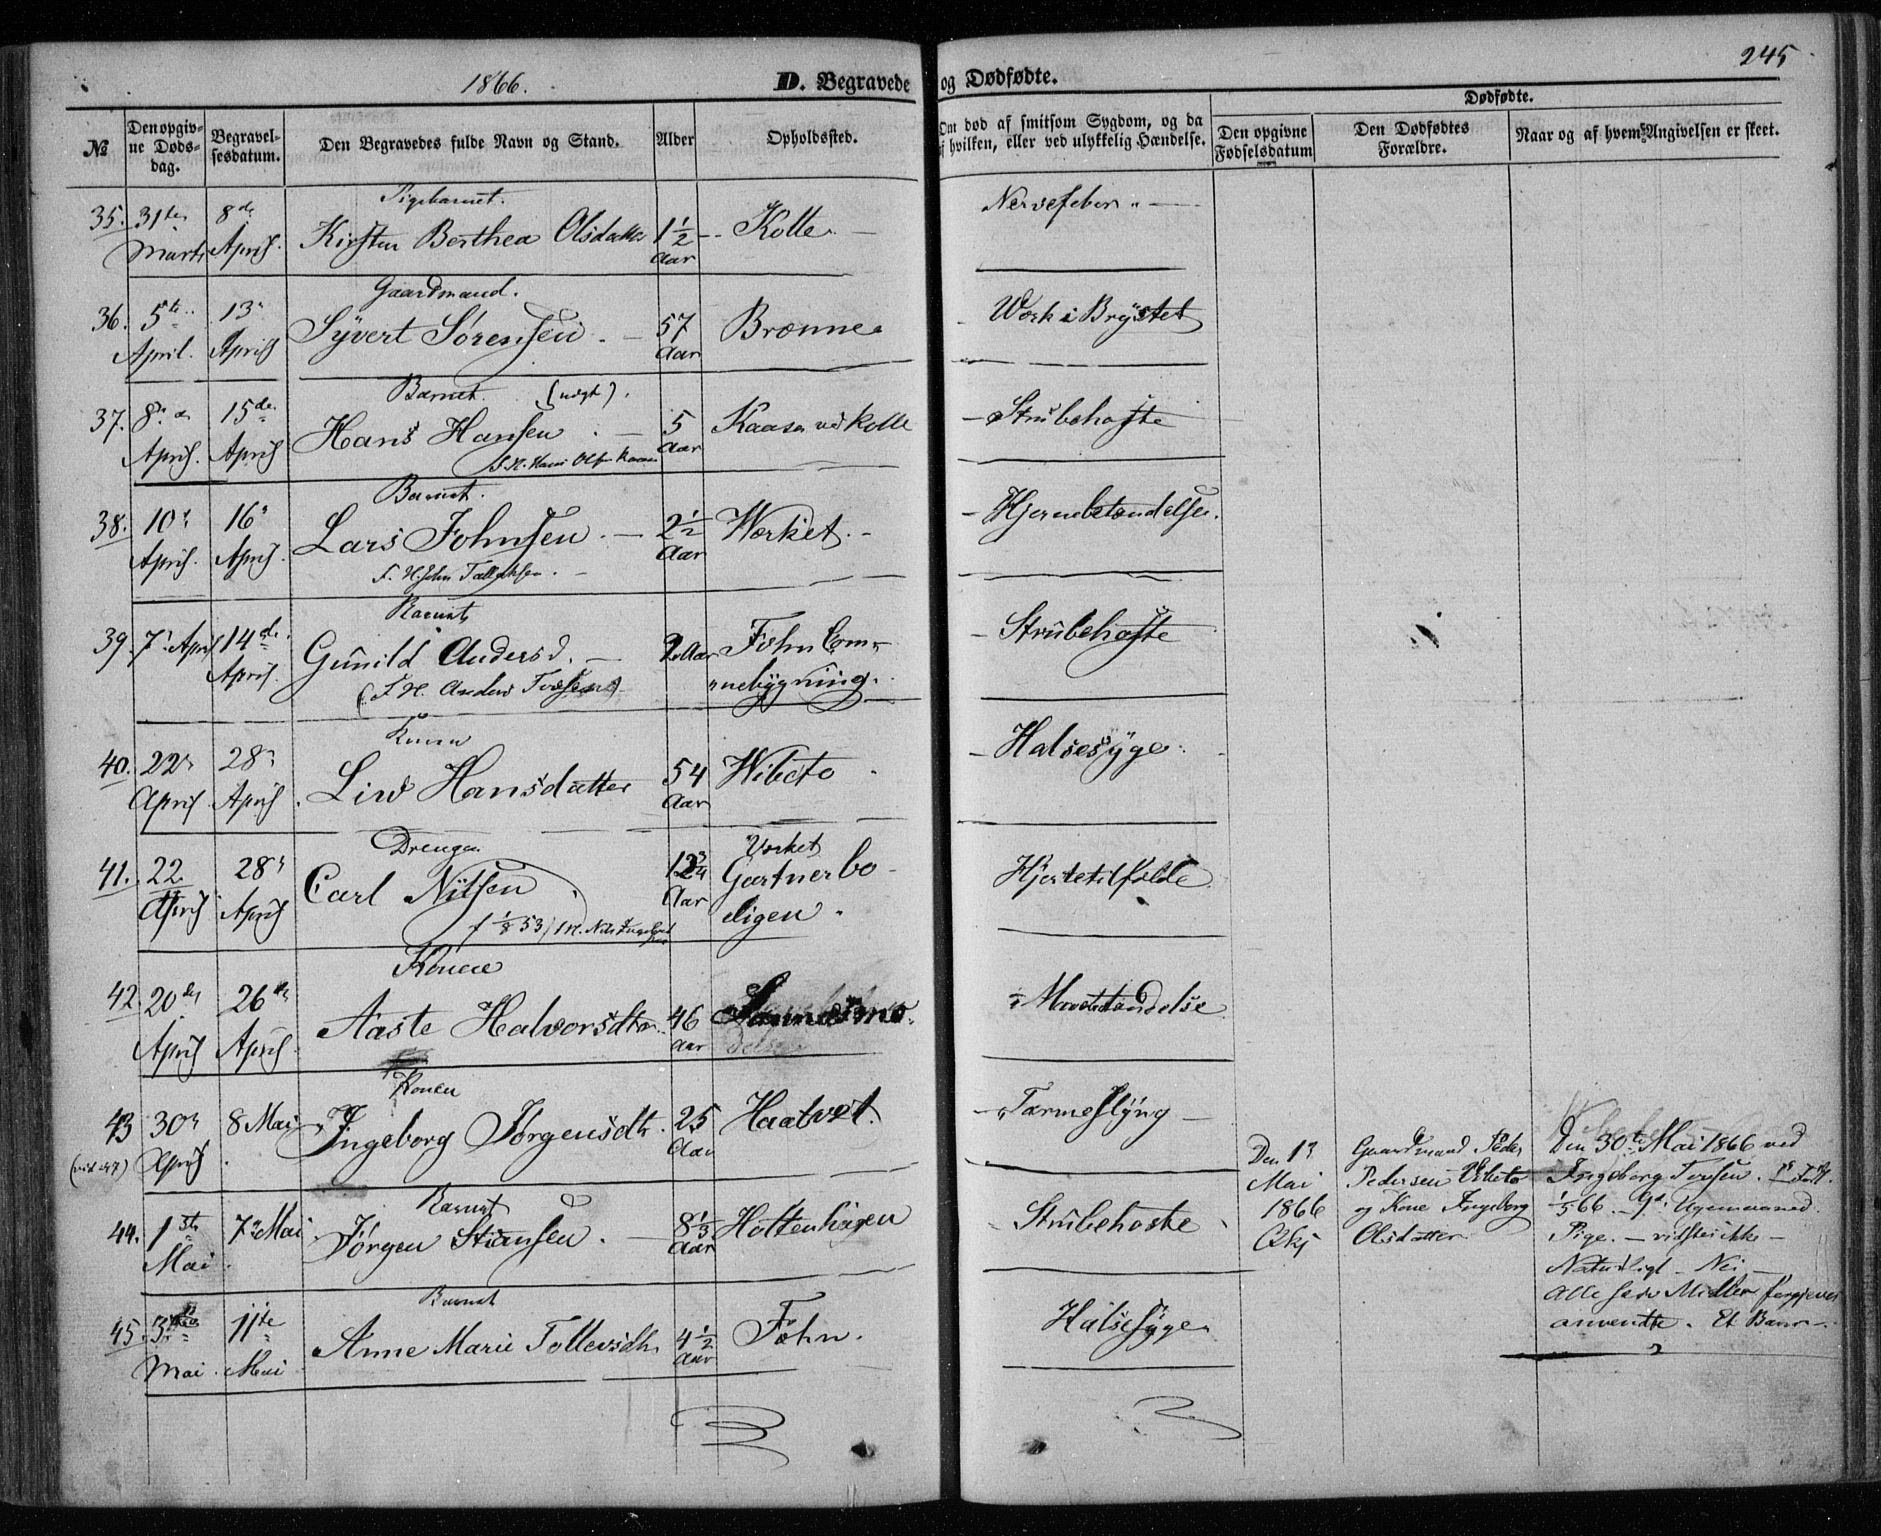 1866.
D. Begravede og Dødfødte.
245
№
Den opgivne Dødsdag.
Begravelsesdatum.
Den Begravedes fulde Navn og Stand.
Alder
Opholdssted.
Om død af smitsom Sygdom, og da af hvilken, eller ved ulykkelig Hændelse.
Dødfødte.
Den opgivne Fødselsdatum
Den Dødfødtes Forældre.
Naar og af hvem Angivelsen er skeet.
Pigebarnet.
35. 31te Marts 8de April. Kirsten Berthea Olsdatter 1½ Aar Kolle. Nervefeber
Gaardmand.
36. 5te April. 13. April Syvert Sørensen. 57 Aar Brønne Værk i Brystet
Barnet. (uægt).
37. 8de April. 15de April Hans Hansen 5 Aar Kaasa ved Kolle Strubehoste
Barnet.
38. 10. April. 16. April. Lars Johnsen. 2½ Aar Værket. Hjernebetændelse.
F. H. John
Barnet
39. 7. April 14de April. Gunild Andersd. 2 Aar Fohn Em-
nebygning. Strubehoste
(F. H. Anders
Konen
40. 22. April 28. April. Liv Hansdatter 54 Aar Wibeto Halsesyge.
Drengen
41. 22. April 28. April Carl Nilsen 12¾ Aar Værket Gartnerbo-
ligen. Hjertetilfælde.
f. 1/8 53
Konen
42. 20de April 26de April Aaste Halvorsdtr. 46 Aar Mavebetændelse
Konen
43 30. April 8 Mai Ingeborg Jørgensdtr. 25 Aar Haatvet. Tarmeslyng
(vid. 47)
Barnet
44. 1ste Mai 7. Mai. Jørgen Stiansen. 8⅓ Aar Hottenhagen Strubehoste
Barnet
45. 3. Mai. 11te Mai Anne Marie Tollevsdtr. 4½ Aar Fæhn. Halsesyge
Den 1. Mai 1866
Gaardmand Peder
Pedersen Wibeto
og Kone Ingeborg
Olsdatter.
Den 30te Mai 1866 ved
Ingeborg
Pige. – vidstes ikke –
Naturligt – Nei –
Alle Midler forgjeves
anvendte. Et Barn.